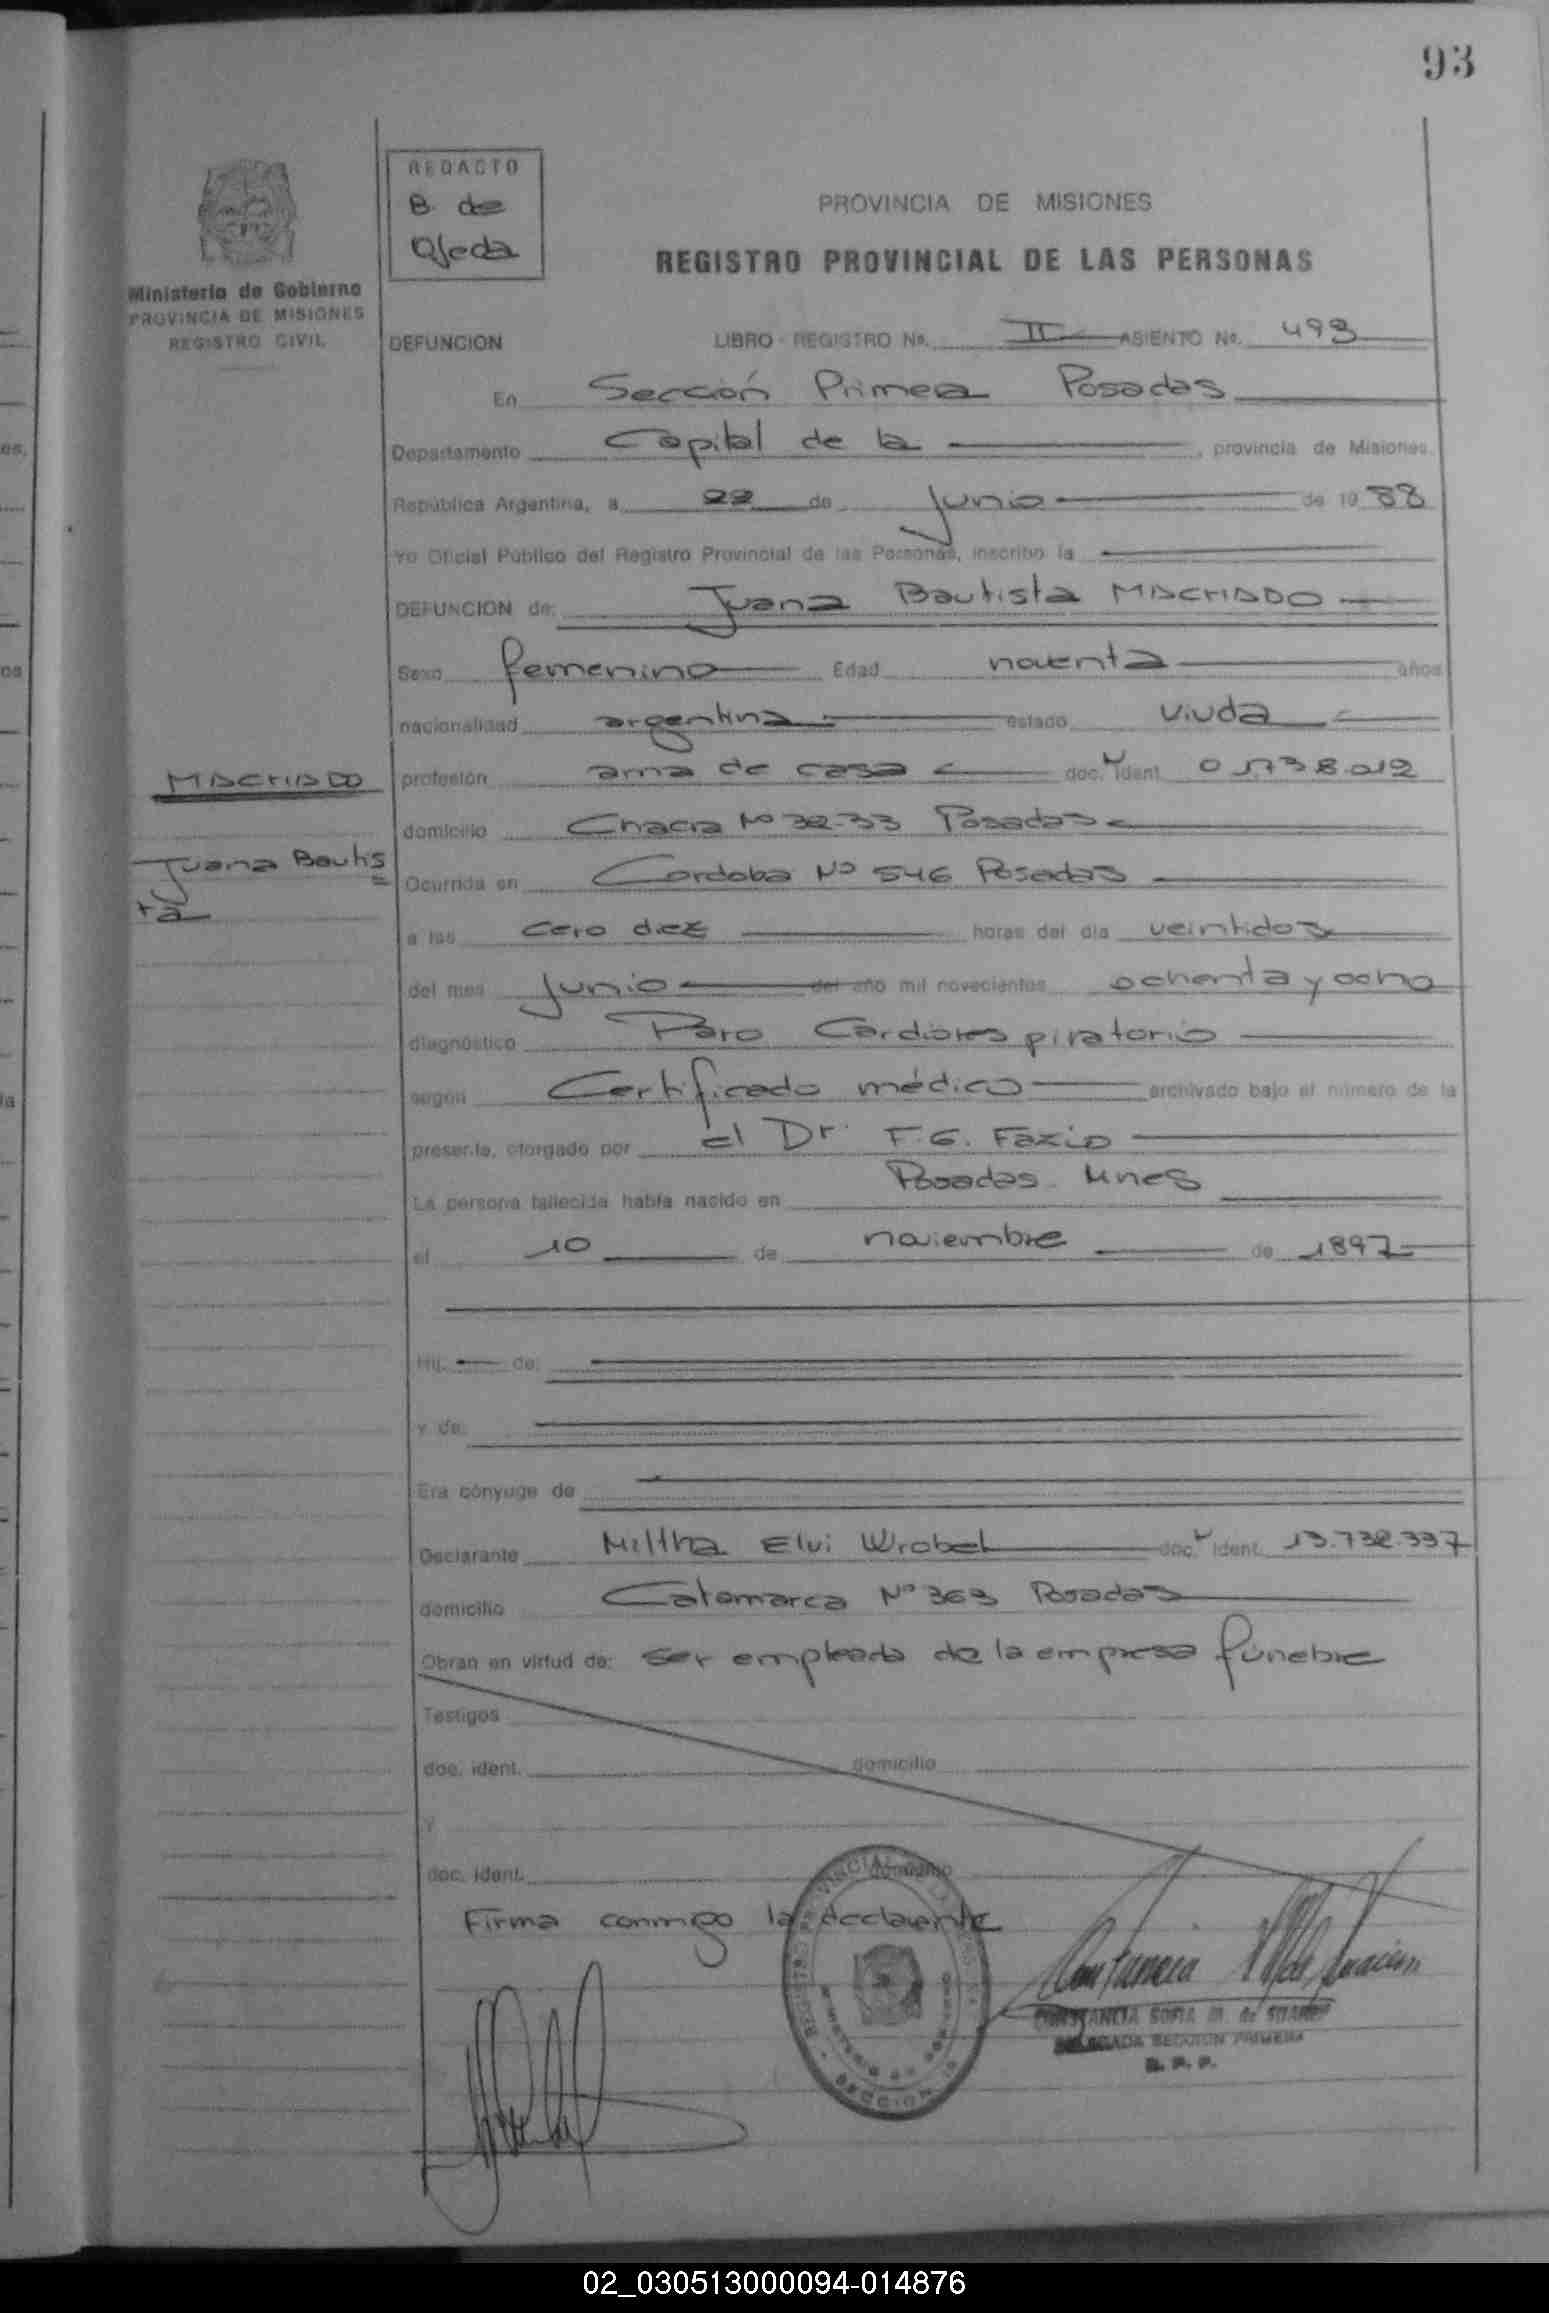 93
REDACTO
B. de
Ojeda
Ministerio de Gobierno
PROVINCIA DE MISIONES
REGISTRO CIVIL
PROVINCIA DE MISIONES
REGISTRO PROVINCIAL DE LAS PERSONAS
DEFUNCION LIBRO - REGISTRO No. II ASIENTO No. 493
En Sección Primera Posadas
Departamento Capital de la , provincia de Misiones.
República Argentina, a 22 de Junio de 19 88
Yo Oficial Público del Registro Provincial de las Personas, inscribo la
DEFUNCION de: Juana Bautista MACHADO
Sexo femenino Edad noventa años
nacionalidad argentina estado viuda
MACHADO
Juana Bautis
ta
profesión ama de casa doc. ident.
domicilio Chacra Nº 32-33 Posadas
Ocurrida en Cordoba Nº 546 Posadas
a las cero diez horas del día veintidos
del mes Junio del año mil novecientos ochenta y ocho
diagnóstico Paro Cardiorespiratorio
según Certificado médico archivado bajo el número de la
presente, otorgado por el Dr. F.G. Fazio
La persona fallecida había nacido en Posadas Mnes
el 10 de noviembre de 1897
Hij de:
y de:
Era cónyuge de
Declarante Miltha Elvi Wrobel doc. ident. 13.732.337
domicilio Catamarca Nº 363 Posadas
Obran en virtud de: ser empleada de la empresa fúnebre
Testigos
doc. ident. domicilio
y
doc. ident. domicilio
Firma conmigo la declarante
CONSTANCIA SOFIA M. de SUAREZ
DELEGADA SECCION PRIMERA
R. P. P.
02_030513000094-014876